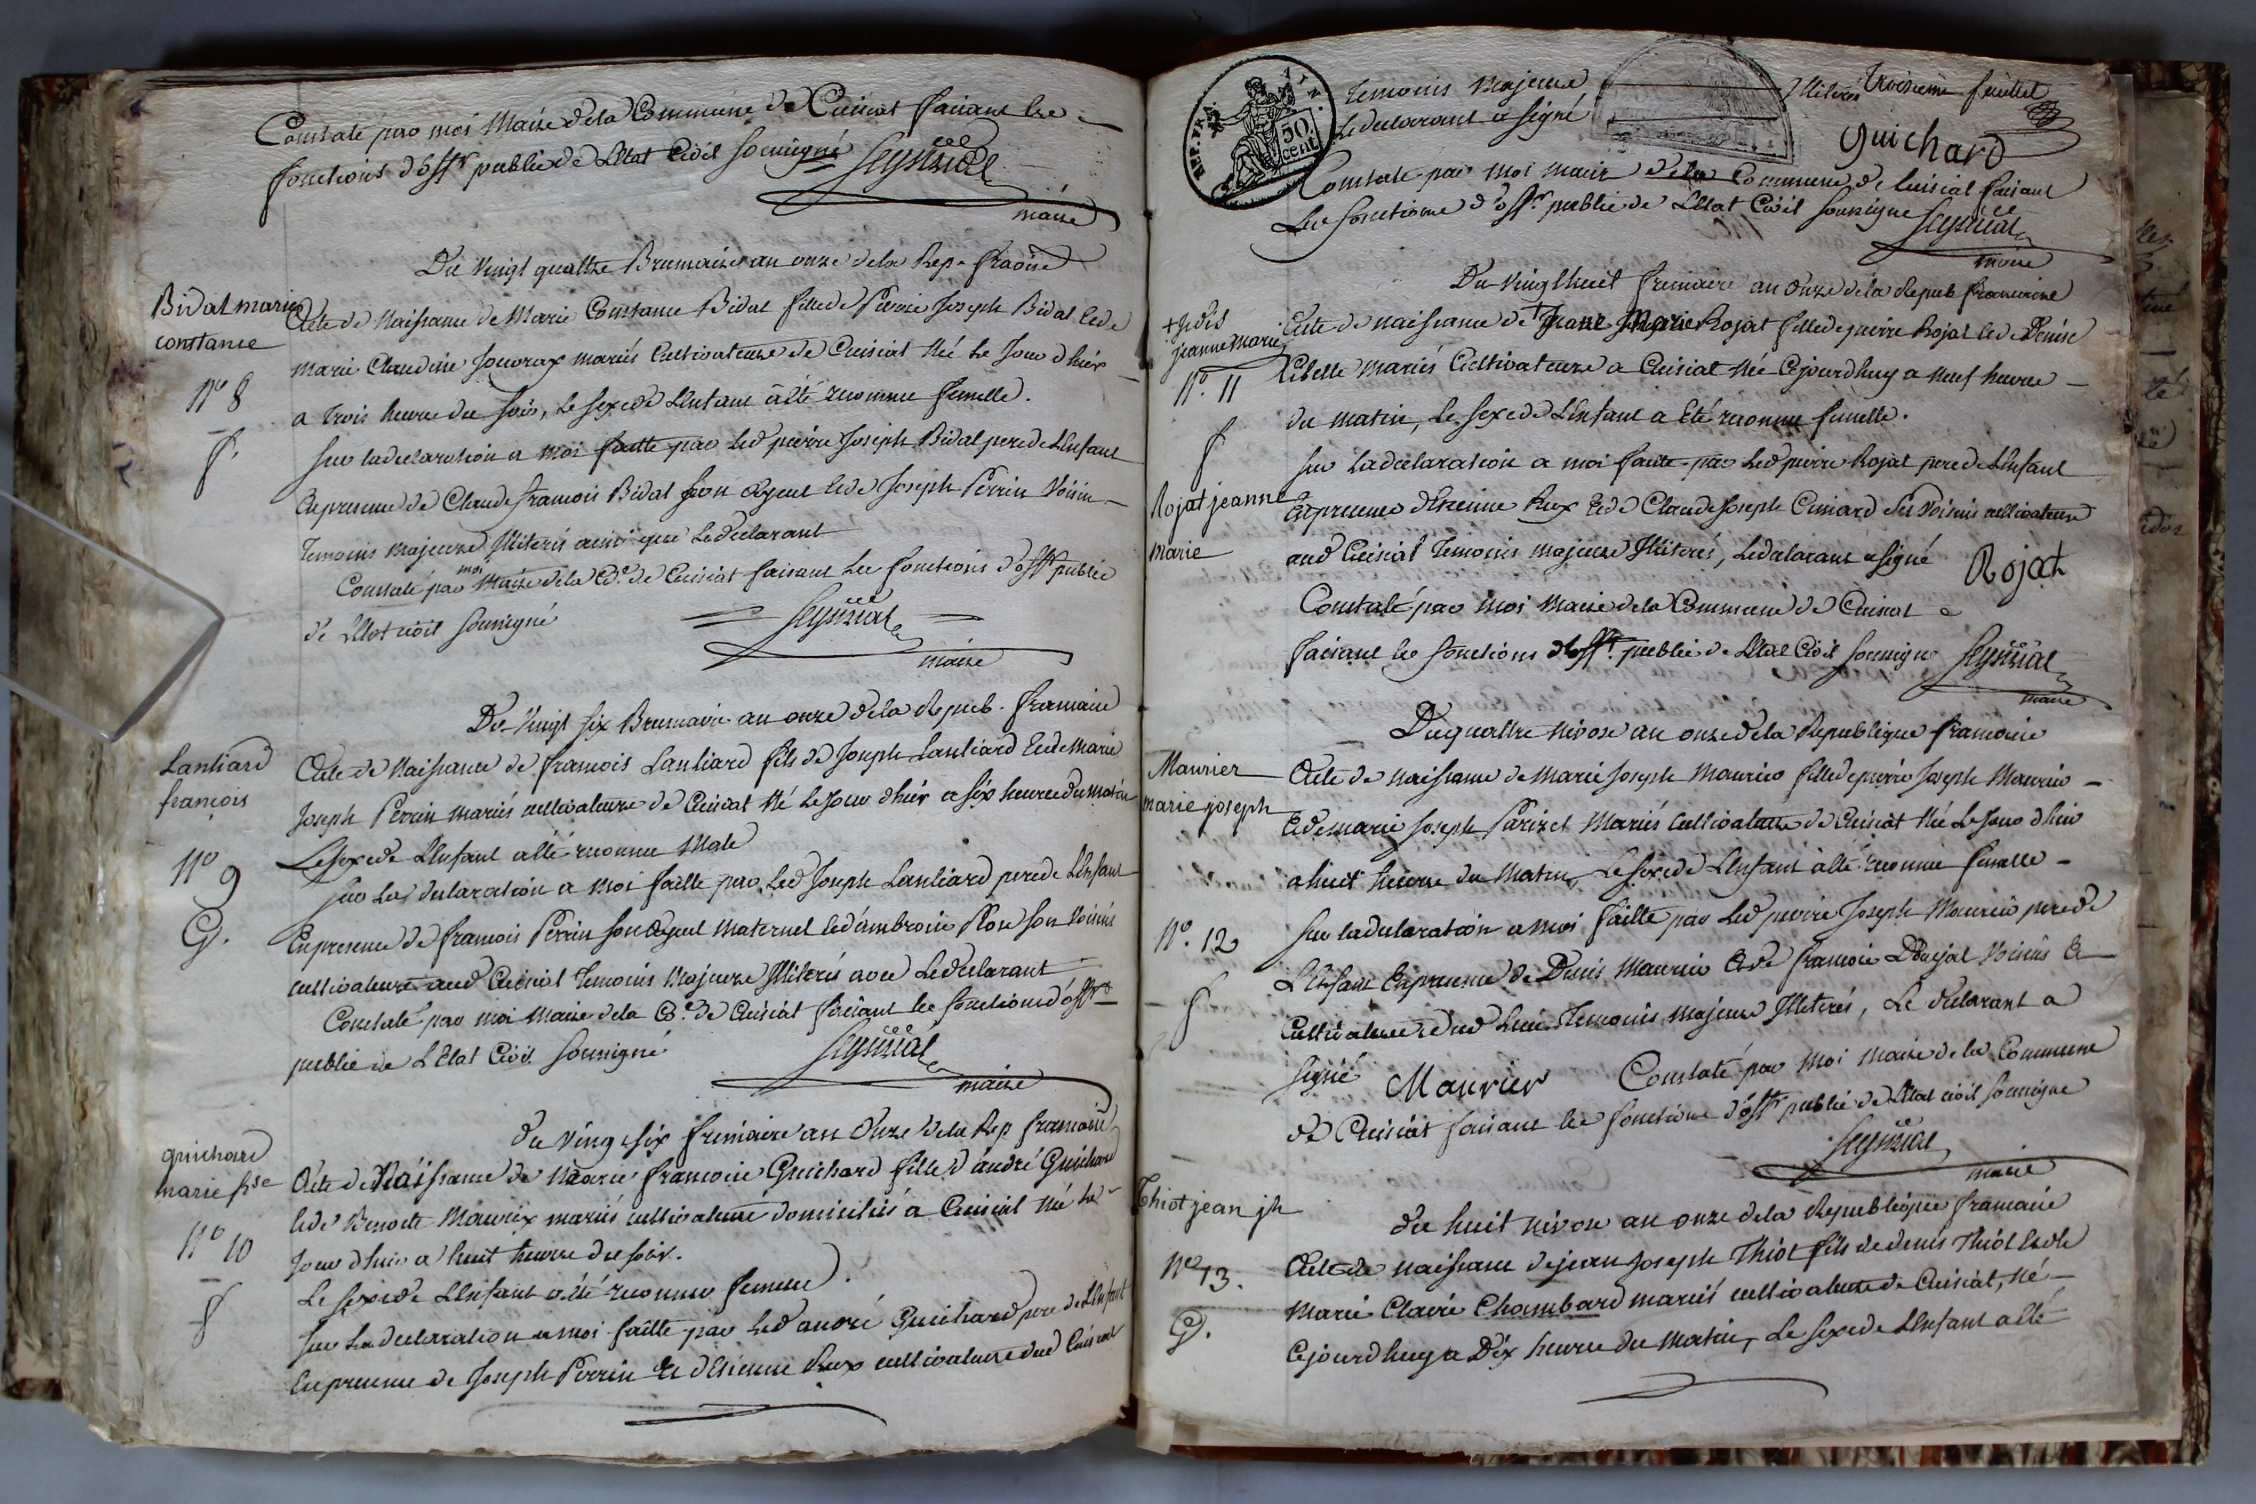 Constaté par moi Maire dela Commune de Cuisiat faisant les
fonctions d'offr. public de L'Etat Civil soussigné
maire
Du Vingt quattre Brumaire an onze dela Rep. fraõne
Bidal marie
constance
N° 8
f.
Acte de Naissance de Marie Constance Bidal fille de Pierre Joseph Bidal et de
marie Claudine mariés Cultivateurs de Cuisiat Née Le Jour d'hier
a trois heure du soir, Le sexe de L'Enfant a été reconnu femelle.
sur la declaration a moi faitte par Led pierre Joseph Bidal pere de L'Enfant
En presence de Claude françois Bidal son ayeul et de Joseph Perrin Voisin
Temoins majeurs Illiterés ainsi que Le declarant
Constaté par moi Maire dela Cõe. de Cuisiat faisant Les fonctions d'offr public
de L'Etat civil soussigné
maire
Du Vingt six Brumaire an onze dela Repub. française
Lanliard
françois
N° 9
G.
Acte de Naissance de françois Lanliard fils de Joseph Lanliard Et de Marie
Joseph Perrin mariés cultivateurs de Cuisiat Né Le Jour d'hier a six heures du matin
Le sexe de L'Enfant a été reconnu Male
sur La declaration a moi faitte par Led Joseph Lanliard pere de L'Enfant
En presence de françois Perrin son ayeul maternel et d'ambroise son Voisin
cultivateurs aud Cuisiat Temoins Majeurs Illiterés avec Le declarant
Constaté par moi maire dela Cõe. de Cuisiat faisant les fonctions d'offr
public de L'Etat Civil soussigné
maire
du Vingt six frimaire an Onze dela Rep française
guichard
marie fse
N° 10
f
Acte de Naissance de Marie françoise Guichard fille d'andré Guichard
et de Benoite mariés cultivateurs domiciliés a Cuisiat Née Le
Jour d'hier a huit heure du soir.
Le sexe de L'Enfant a été reconnu femelle.
sur La declaration a moi faitte par Led andré Guichard pere de L'Enfant
En presence de Joseph Perrin et d'Etienne Rux cultivateurs dud Cuisiat
REP. FRA.
AIN.
50.
cent.
Temoins Majeurs Illiterés
Troisieme feuillet
Le declarant a signé
Guichard
Constaté par moi maire dela Commune de Cuisiat faisant
Les fonctions d'offr. public de L'Etat Civil soussigné
maire
Du Vingt huit frimaire an Onze dela Repub française
+ Je dis
jeanne marie
N°. 11
f
Rojat jeanne
marie
Acte de naissance de + Rojat fille de pierre Rojat et de Denise
mariés Cultivateurs a Cuisiat Née Cejourdhuy a neuf heures
du matin, Le sexe de L'Enfant a Eté reconnu femelle.
sur La declaration a moi faitte par Led pierre Rojat pere de L'Enfant
En presence d'Etienne Rux et de Claude Joseph ses Voisins cultivateurs
aud Cuisiat Temoins majeurs Illiterés, Le declarant a signé
Rojat
Constaté par moi Maire dela Commune de Cuisiat
faisant les fonctions d'offr. public de L'Etat Civil soussigné
maire
Du quattre nivose an onze dela Republique française
Maurier
marie joseph
N°. 12
f
Acte de naissance de Marie Joseph Maurier fille de pierre Joseph Maurier
Et de marie Joseph Parizet Mariés cultivateurs de Cuisiat Née Le Jour d'hier
a huit heures du Matin, Le sexe de L'Enfant a été reconnu femelle
sur La declaration a moi faitte par Led pierre Joseph Maurier pere de
L'Enfant En presence de Denis Maurier Et de françois Voisins Et
Cultivateurs dud Lieu Temoins majeurs Illiterés, Le declarant a
signé Maurier Constaté par moi Maire dela Commune
de Cuisiat faisant les fonctions d'offr public de L'Etat civil soussigné
maire
du huit nivose an onze dela Republique française
Thiot jean jh
N° 13.
G.
Acte de naissance de jean Joseph Thiot fils de denis Thiot Et de
Marie Claire Chambard mariés cultivateurs de Cuisiat, Né
Cejourdhuy a Dix heures du Matin, Le sexe de L'Enfant a été